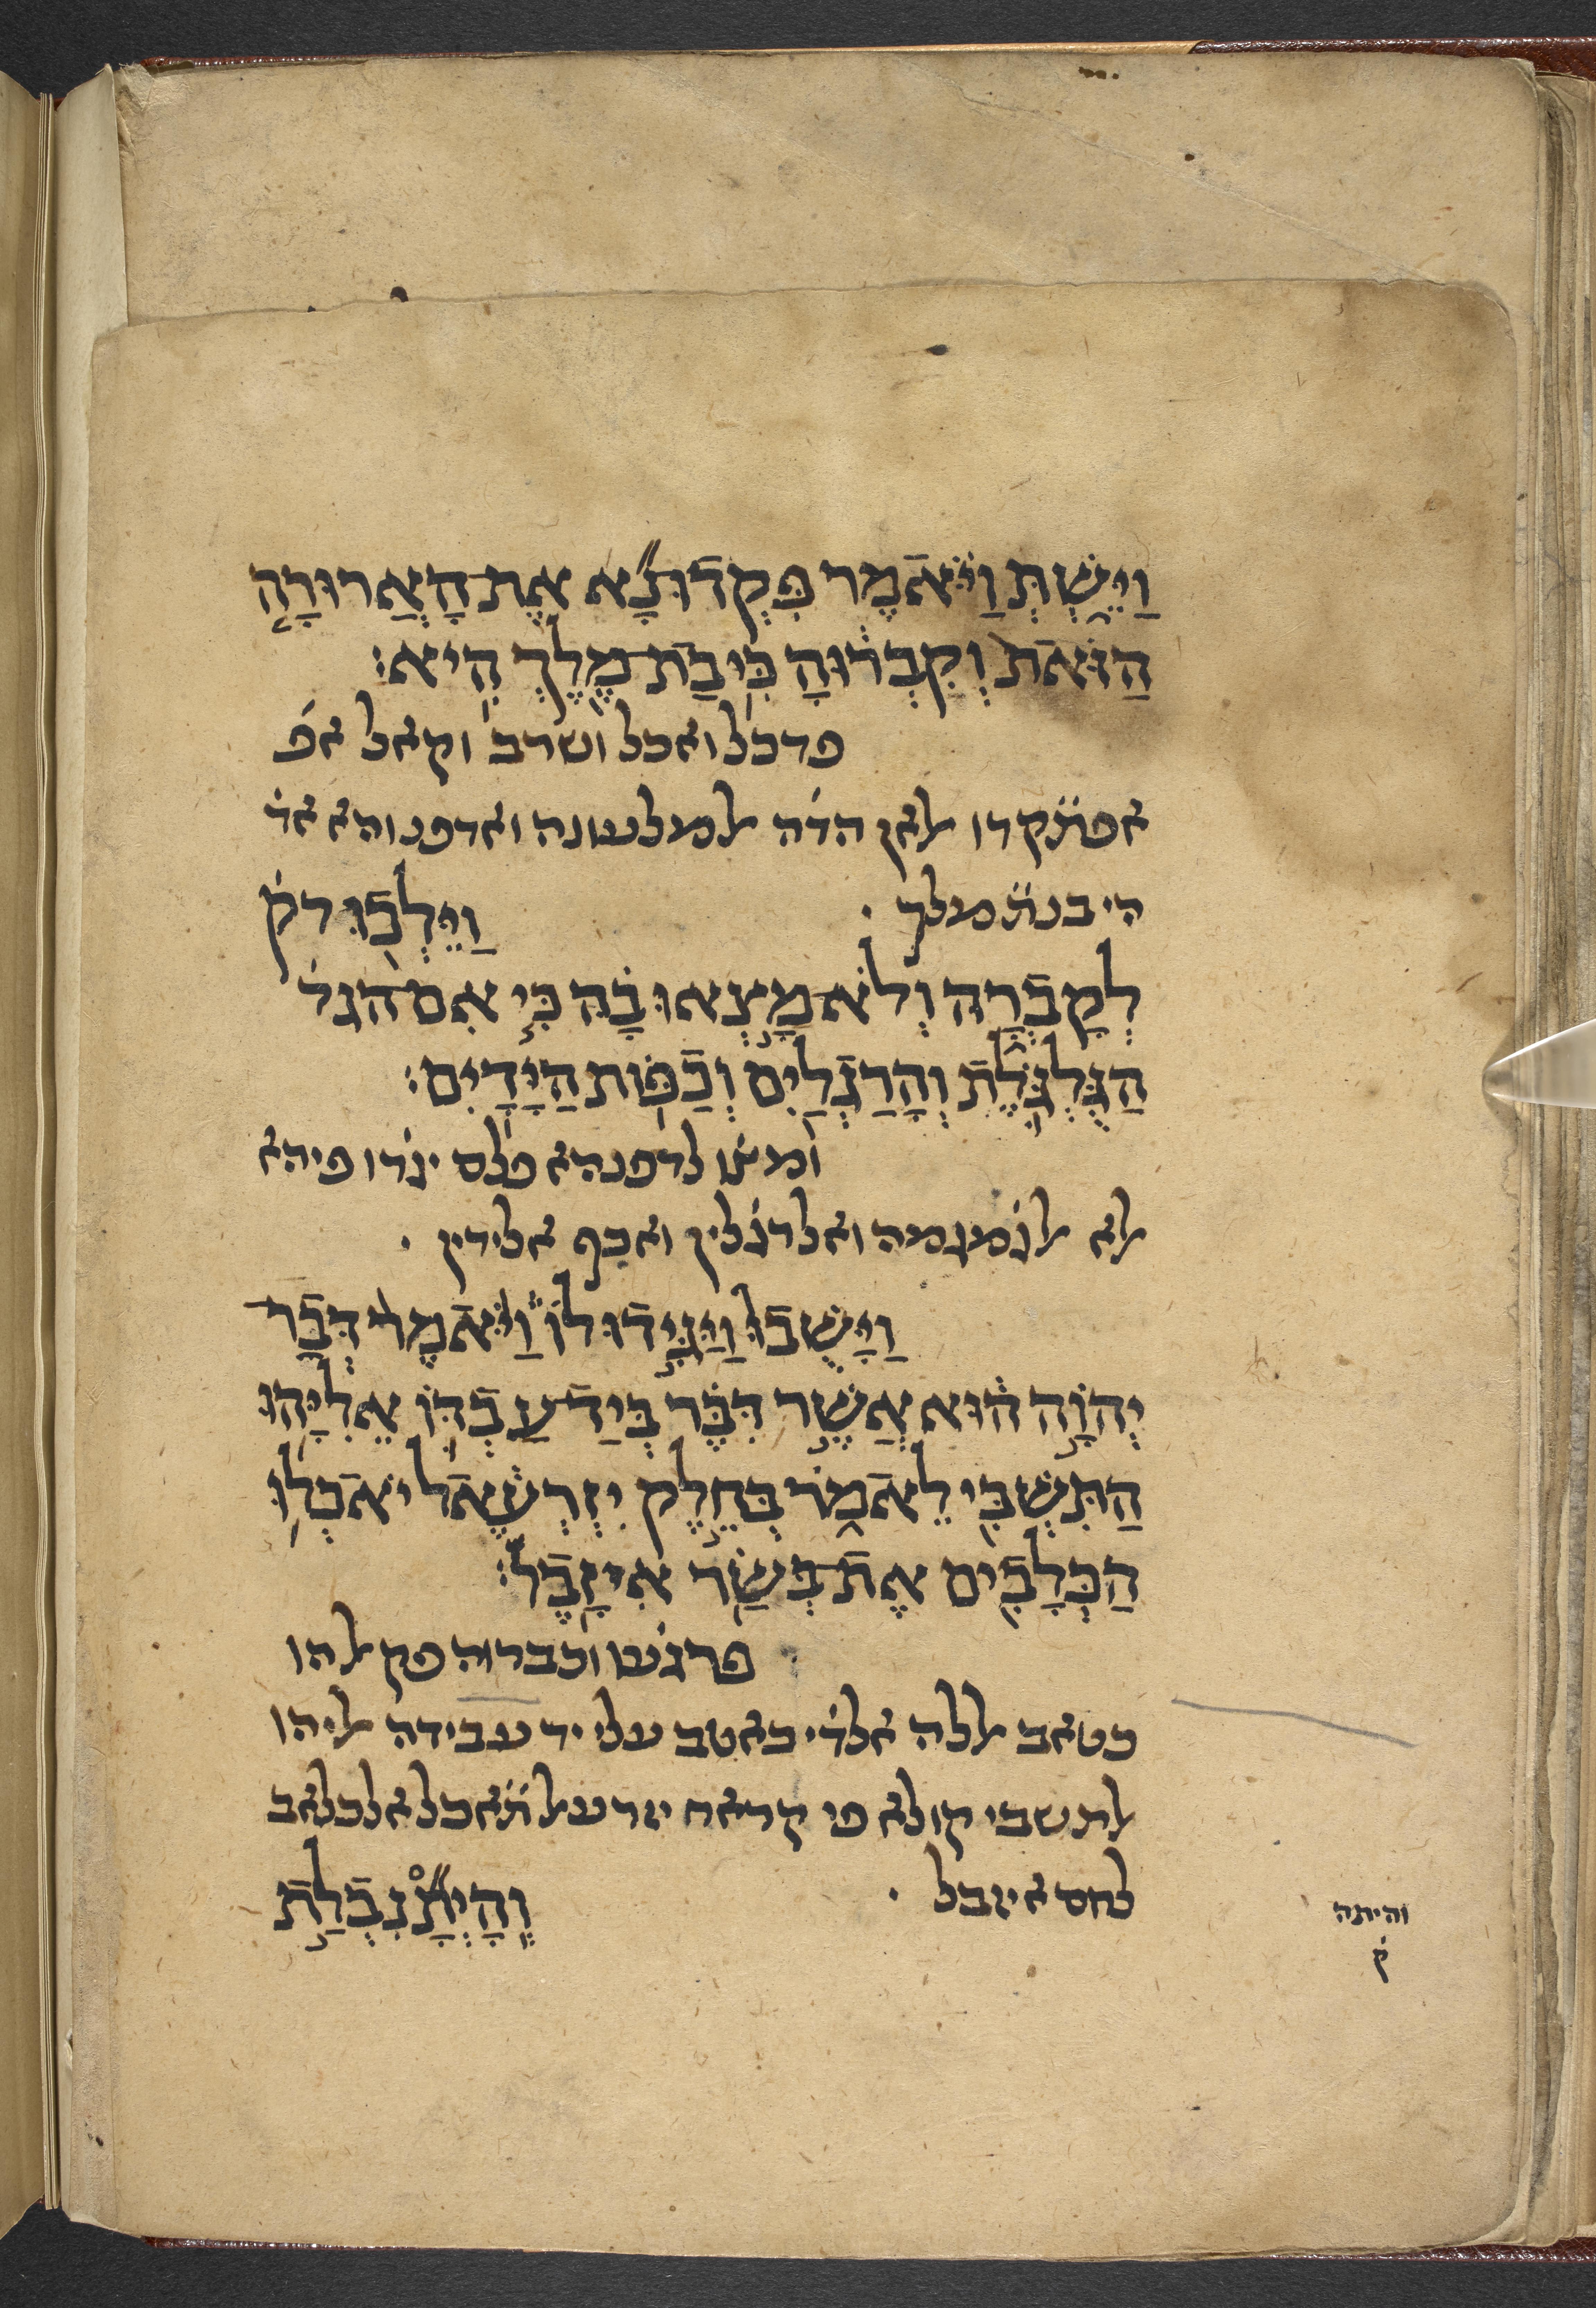 וַיֵּשְׁתְּ וַיֹּאמֶר פִּקְדוּ נָא אֶת הָאֲרוּרָה
הַזֹּאת וְקִבְרוּהָ כִּי בַת מֶלֶךְ הִיא׃
פדכ̇ל ואכל ושרב וקאל אפ
אפתקדו לאן הד̇ה למלעונה ואדפנוהא אד̇
הי בנת מלך . וַיֵּלְכוּ לק
לְקָבְרָהּ וְלֹא מָצְאוּ בָהּ כִּי אִם הגל
הַגֻּלְגֹּלֶת וְהָרַגְלַיִם וְכַפּוֹת הַיָּדָיִם׃
ומצ̇ו לדפנהא פלם יג̇דו פיהא
לא לג̇מג̇מה ואלרג̇לין ואכף אלידין .
וַיָּשֻׁבוּ וַיַּגִּידוּ לוֹ וַיֹּאמֶר דְּבַר
יְהוָה הוּא אֲשֶׁר דִּבֶּר בְּיַד עַבְדּוֹ אֵלִיָּהוּ
הַתִּשְׁבִּי לֵאמֹר בְּחֵלֶק יִזְרְעֶאל יֹאכְלוּ
הַכְּלָבִים אֶת בְּשַׂר אִיזָבֶל׃
פרג̇עו וכ̇ברוה פק להו
כטאב ללה אלד̇י כאטב עלי יד עבידה ליהו
לתשבי קולא פי קראח יזרעל תאכל אלכלאב
לחם איזבל . וְהָיְתָ נִבְלַת
והיתה
ק̇